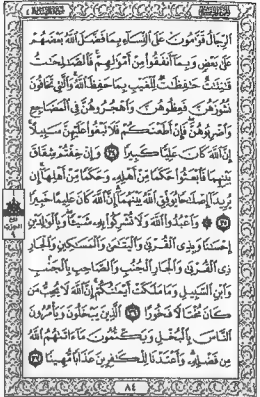 الرِّجَالُ قَوَّٰمُونَ عَلَى النِّسَآءِ بِمَا فَضَّلَ اللَّهُ بَعْضَهُمْ
عَلَىٰ بَعْضٍ وَبِمَآ أَنفَقُوا مِنْ أَمْوَٰلِهِمْ فَالصَّٰلِحَٰتُ
قَٰنِتَٰتٌ حَٰفِظَٰتٌ لِّلْغَيْبِ بِمَا حَفِظَ اللَّهُ وَالَّٰتِي تَخَافُونَ
نُشُوزَهُنَّ فَعِظُوهُنَّ وَاهْجُرُوهُنَّ فِي الْمَضَاجِعِ
وَاضْرِبُوهُنَّ فَإِنْ أَطَعْنَكُمْ فَلَا تَبْغُوا عَلَيْهِنَّ سَبِيلًا
إِنَّ اللَّهَ كَانَ عَلِيًّا كَبِيرًا ٣٤ وَإِنْ خِفْتُمْ شِقَاقَ
بَيْنِهِمَا فَابْعَثُوا حَكَمًا مِّنْ أَهْلِهِ وَحَكَمًا مِّنْ أَهْلِهَآ إِن
يُرِيدَآ إِصْلَٰحًا يُوَفِّقِ اللَّهُ بَيْنَهُمَآ إِنَّ اللَّهَ كَانَ عَلِيمًا خَبِيرًا
٣٥ ۞ وَاعْبُدُوا اللَّهَ وَلَا تُشْرِكُوا بِهِ شَيْئًا وَبِالْوَٰلِدَيْنِ
إِحْسَٰنًا وَبِذِي الْقُرْبَىٰ وَالْيَتَٰمَىٰ وَالْمَسَٰكِينِ وَالْجَارِ
ذِي الْقُرْبَىٰ وَالْجَارِ الْجُنُبِ وَالصَّاحِبِ بِالْجَنۢبِ
وَابْنِ السَّبِيلِ وَمَا مَلَكَتْ أَيْمَٰنُكُمْ إِنَّ اللَّهَ لَا يُحِبُّ مَن
كَانَ مُخْتَالًا فَخُورًا ٣٦ الَّذِينَ يَبْخَلُونَ وَيَأْمُرُونَ
النَّاسَ بِالْبُخْلِ وَيَكْتُمُونَ مَآ ءَاتَىٰهُمُ اللَّهُ
مِن فَضْلِهِ وَأَعْتَدْنَا لِلْكَٰفِرِينَ عَذَابًا مُّهِينًا ٣٧
٨٤